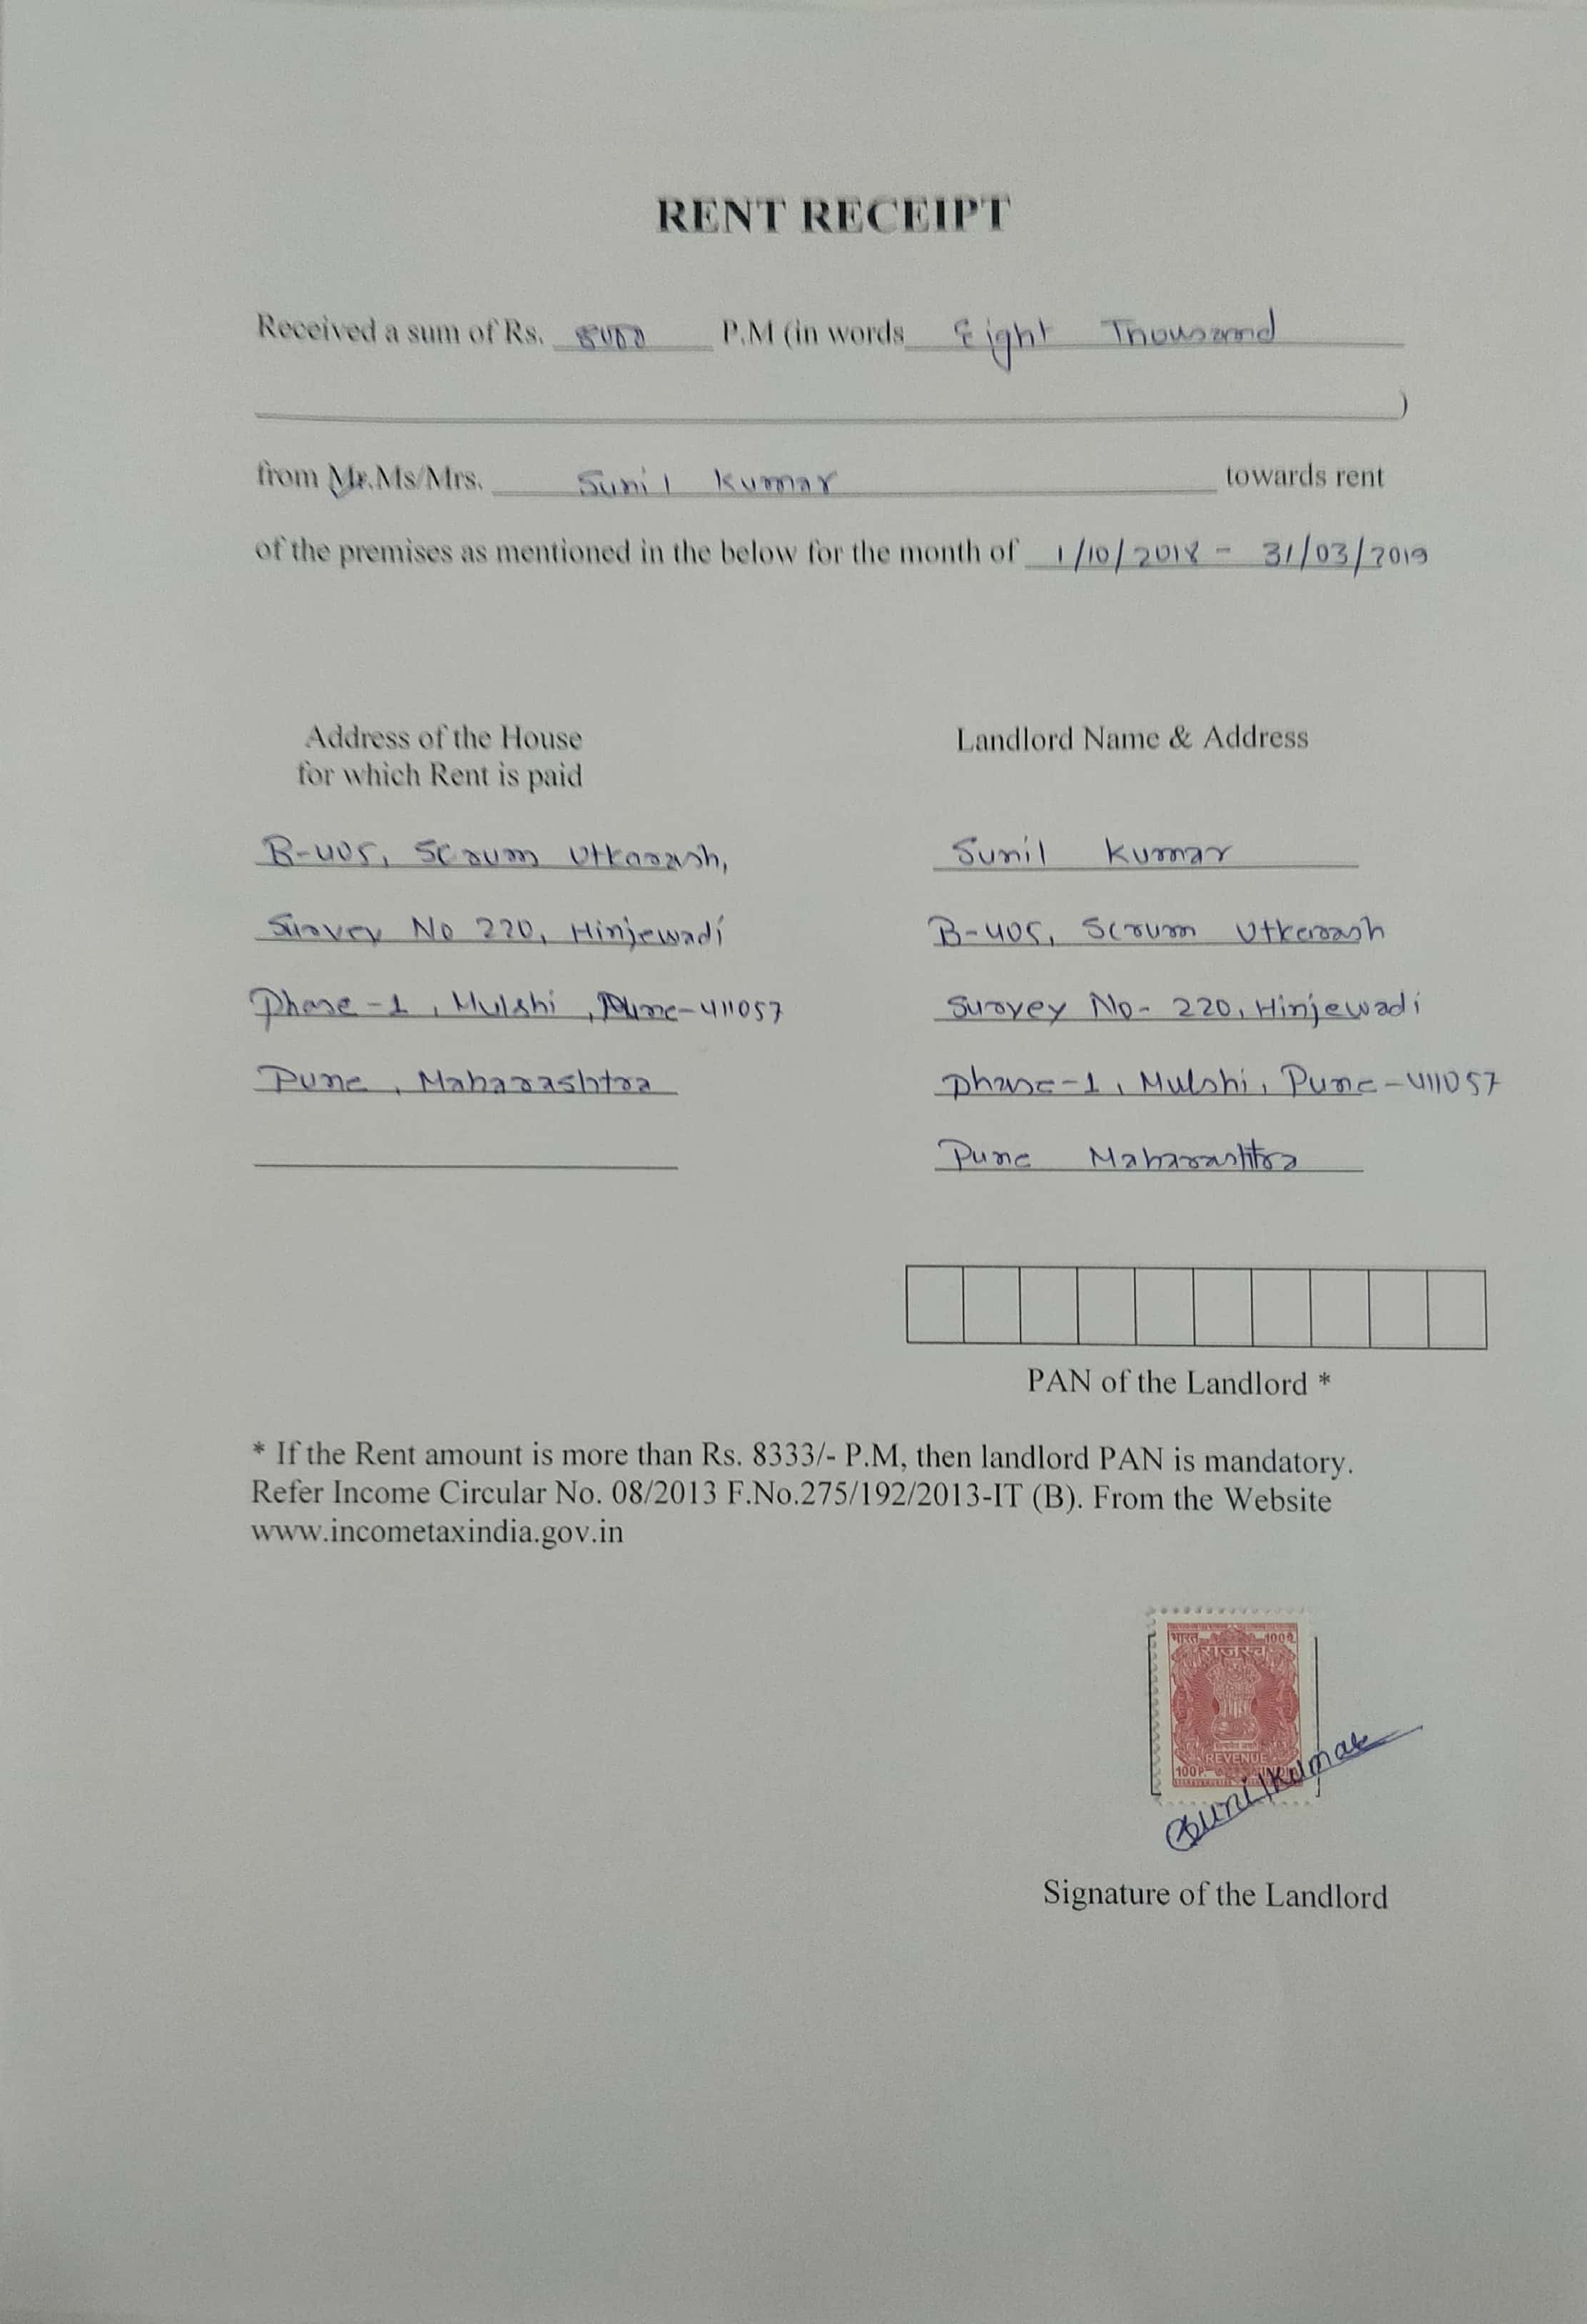 RENT RECEIPT
Received a sum of Rs. 8000 P.M (in words Eight Thousand
)
from Mr.Ms/Mrs. Sunil Kumar towards rent
of the premises as mentioned in the below for the month of 1/10/2018 - 31/03/2019
Address of the House
for which Rent is paid
B-405, Scrum Utkarash,
Survey No 220, Hinjewadi
Phase-1, Mulshi, Pune-411057
Pune, Maharashtra
Landlord Name & Address
Sunil Kumar
B-405, Scrum Utkarash
Survey No- 220, Hinjewadi
Phase-1, Mulshi, Pune-411057
Pune Maharashtra
PAN of the Landlord *
* If the Rent amount is more than Rs. 8333/- P.M, then landlord PAN is mandatory.
Refer Income Circular No. 08/2013 F.No.275/192/2013-IT (B). From the Website
www.incometaxindia.gov.in
भारत 100 पै.
राजस्व
REVENUE
100 P. INDIA
Sunil Kumar
Signature of the Landlord